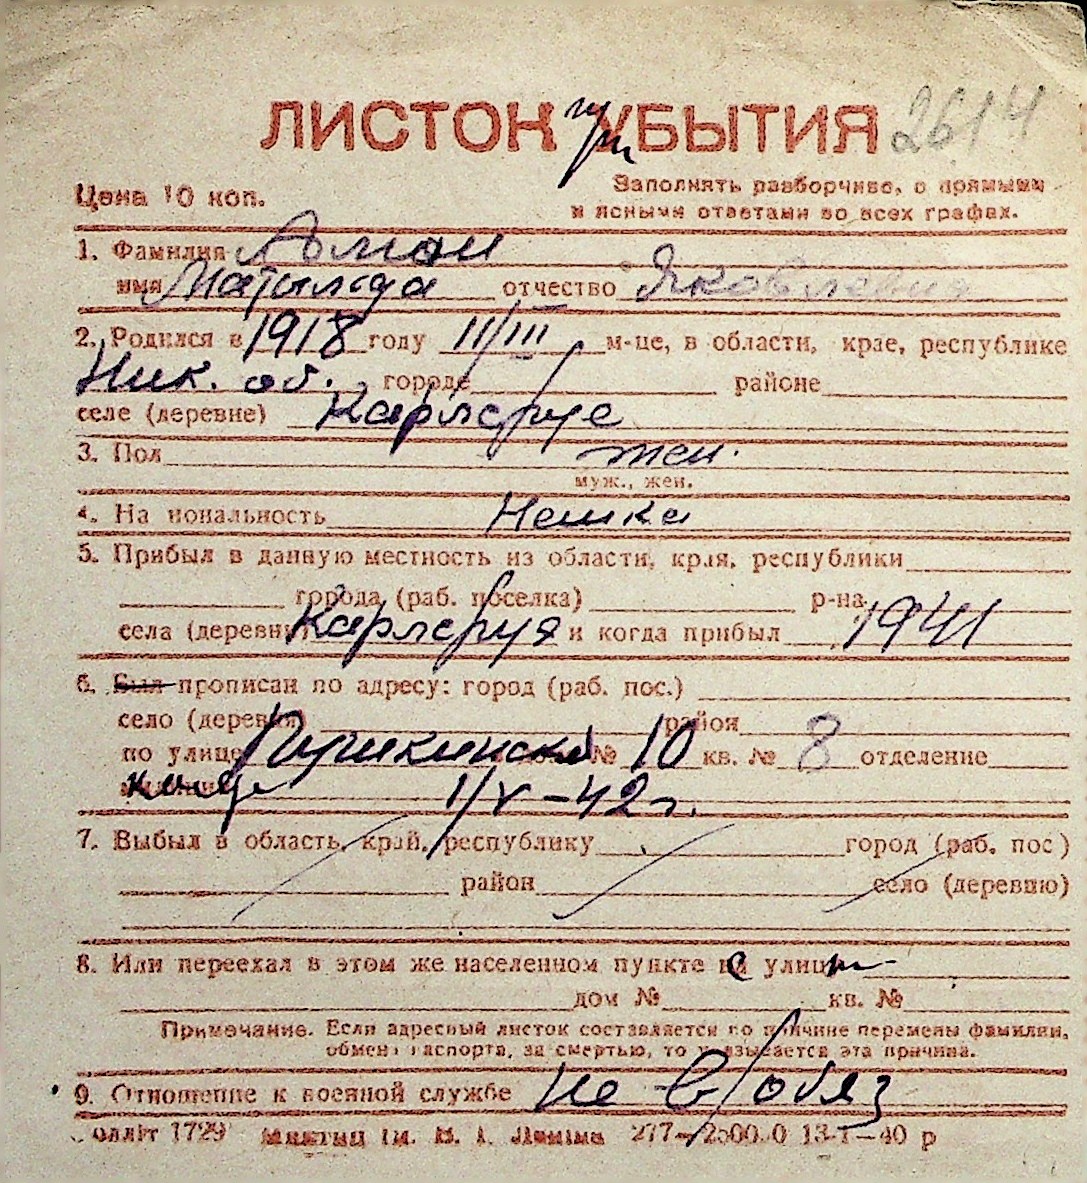 ЛИСТОК УБЫТИЯ 2614
при
Цена 10 коп.
Заполнять разборчиво, с прямыми
и ясными ответами во всех графах.
1. Фамилия
имя Матильда отчество Яковлевна
2. Родился в 1918 году 11/III м-це, в области, крае, республике
Ник. об. городе районе
селе (деревне) Карлсруе
3. Пол жен.
муж., жен.
4. Национальность Немка
5. Прибыл в данную местность из области, края, республики
города (раб. поселка) р-на
села (деревни) Карлсруя и когда прибыл 1941
6. Был прописан по адресу: город (раб. пос.)
село (деревня) район
по улице Пушкинской № 10 кв. № 8 отделение
1/V-42 г.
7. Выбыл в область, край, республику город (раб. пос)
район село (деревню)
8. Или переехал в этом же населенном пункте с улицы
дом № кв. №
Примечание. Если адресный листок составляется по причине перемены фамилии,
обмена паспорта, за смертью, то указывается эта причина.
9. Отношение к военной службе не в/обяз
1729 ім. В. І. Леніна 13-І-40 р